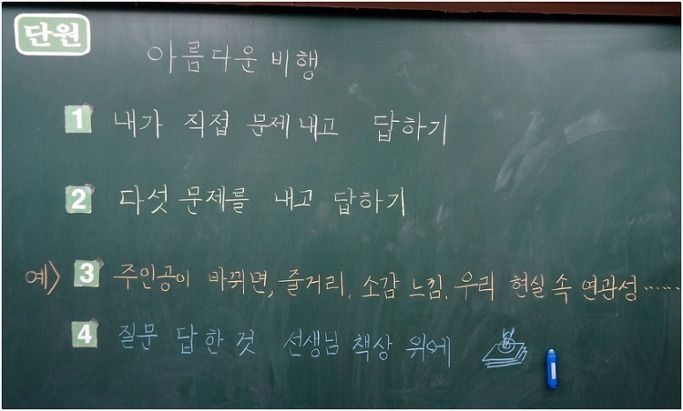 단원
아름다운 비행
1 내가 직접 문제 내고 답하기
2 다섯 문제를 내고 답하기
예> 3 주인공이 바뀌면, 줄거리, 소감 느낌, 우리 현실 속 연관성……
4 질문 답한 것 선생님 책상 위에